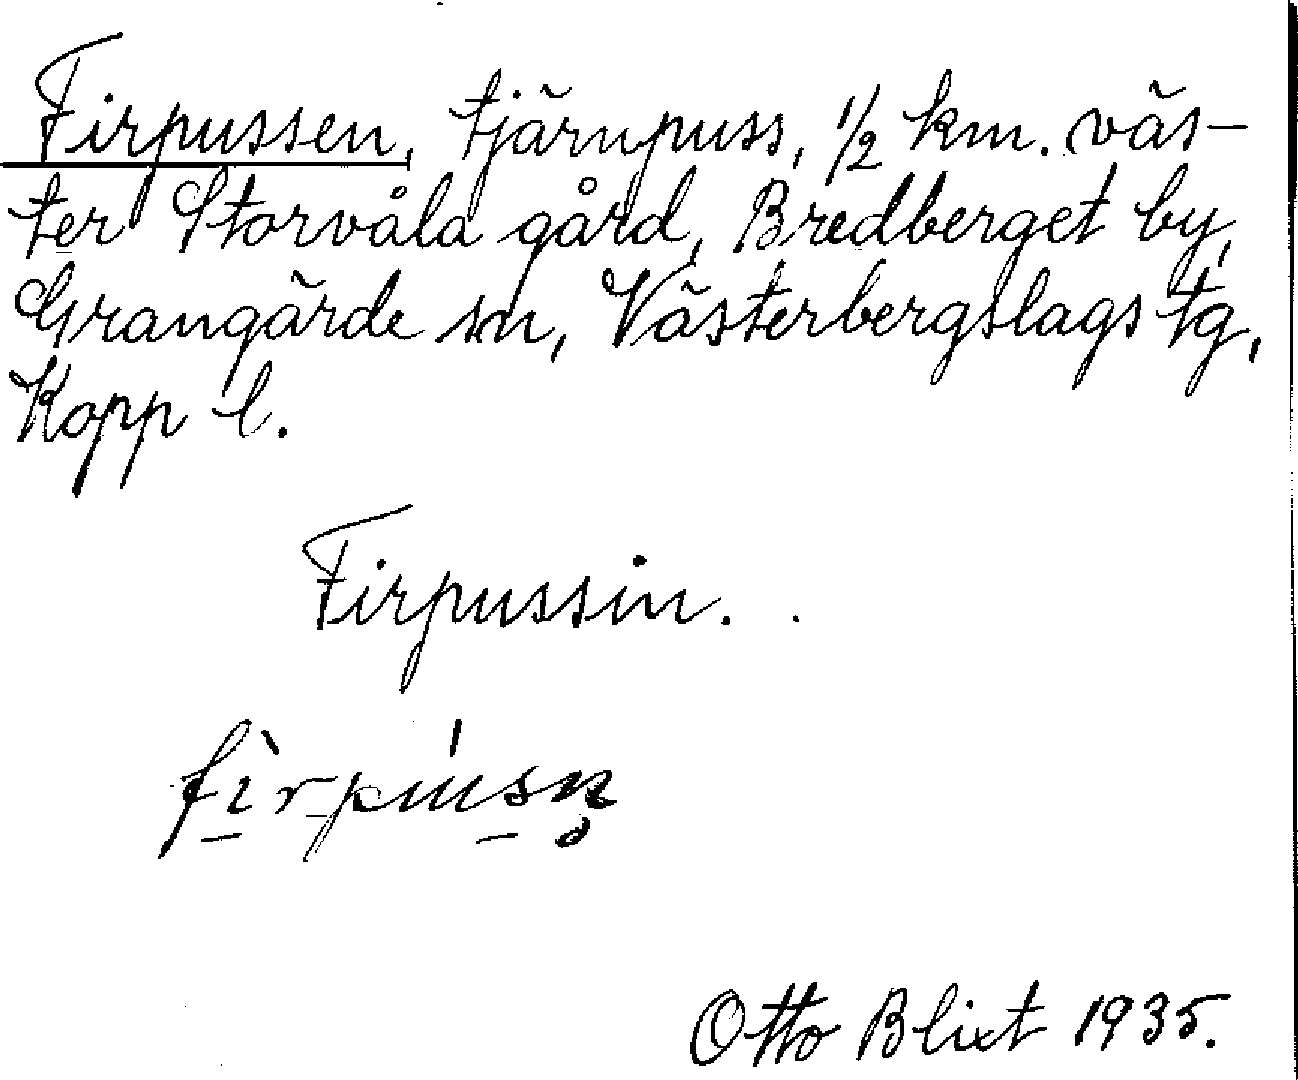 Firpussen, tjärnpuss, 1/2 km. väs-
ter Storvåla gård, Bredberget by,
Grangärde sn, Västerbergslags tg,
Kopp l.
Firpussin.
fìrpúsn̥
Otto Blixt 1935.